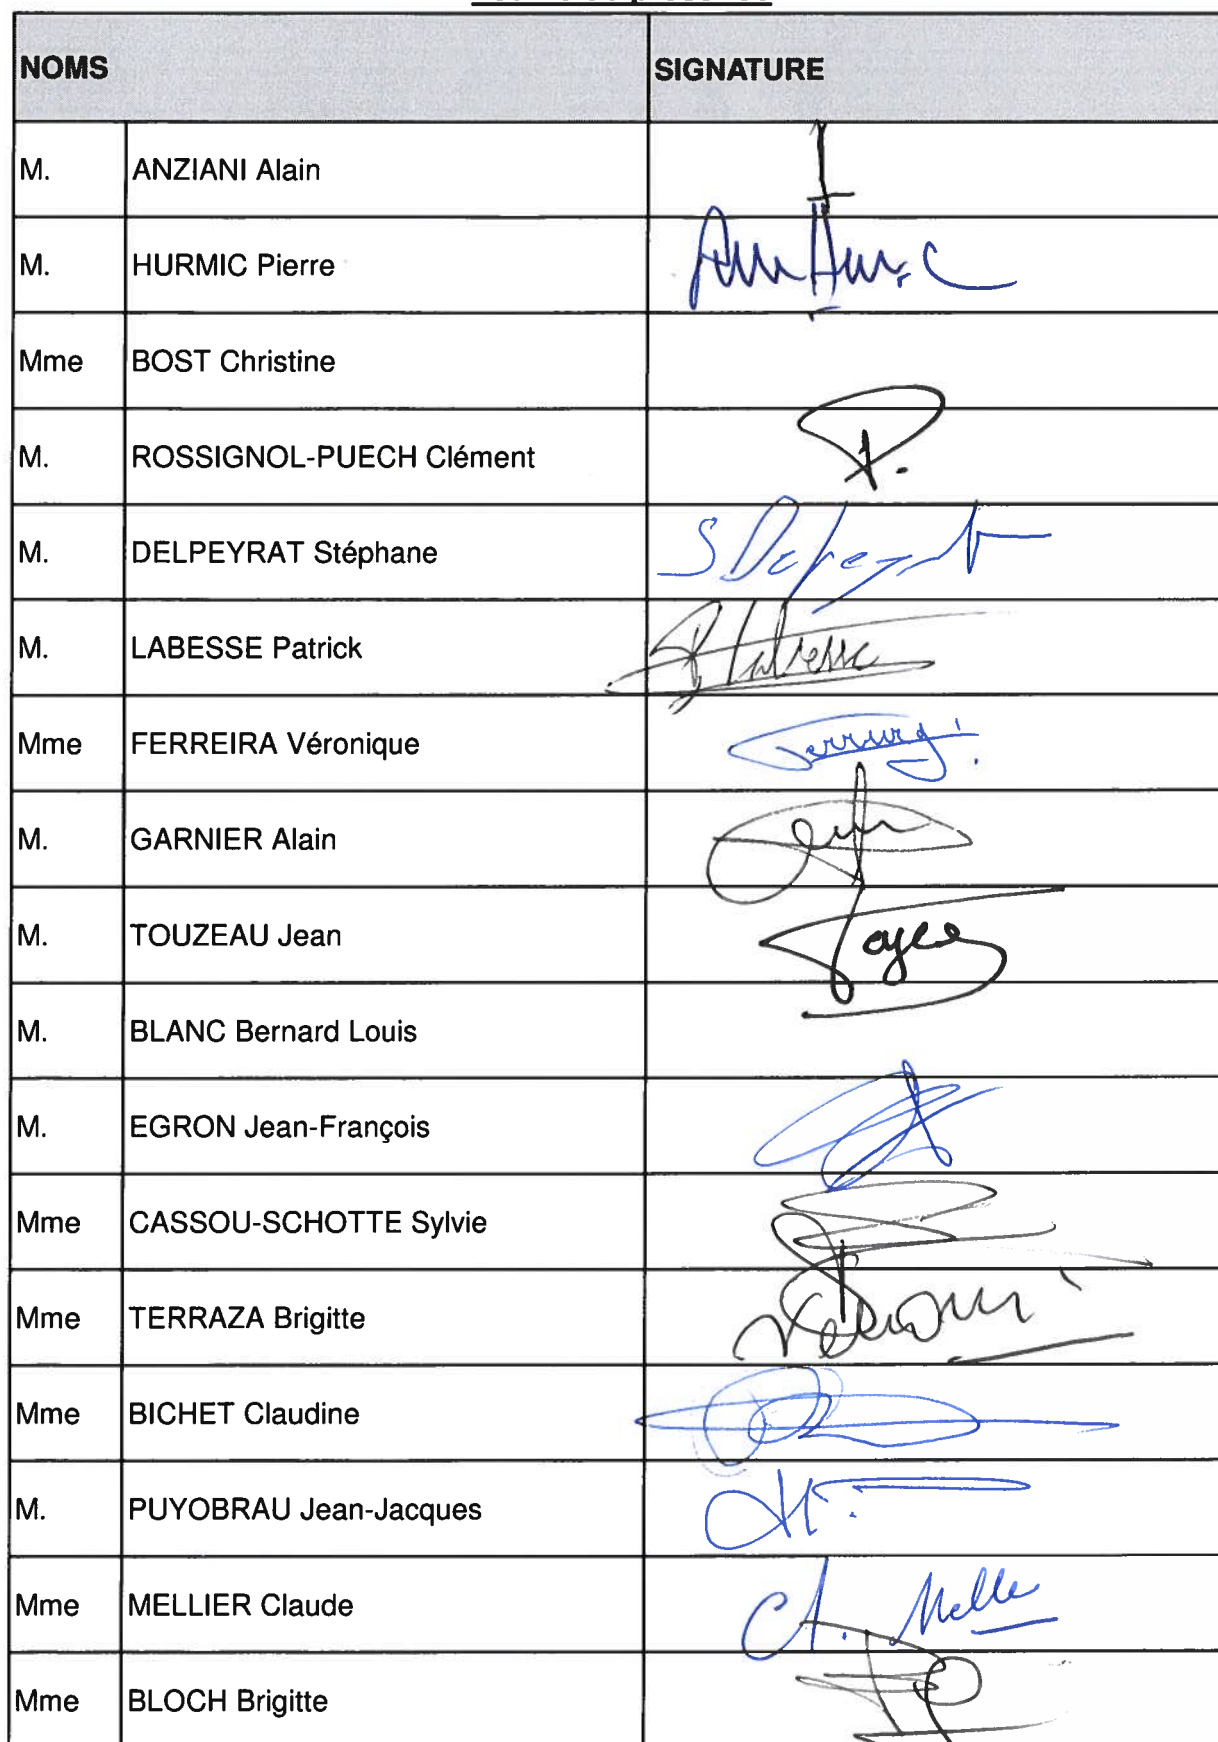 NOMS SIGNATURE
M. ANZIANI Alain
M. HURMIC Pierre
Mme BOST Christine
M. ROSSIGNOL-PUECH Clément
M. DELPEYRAT Stéphane S Delpeyrat
M. LABESSE Patrick P Labesse
Mme FERREIRA Véronique
M. GARNIER Alain
M. TOUZEAU Jean
M. BLANC Bernard Louis
M. EGRON Jean-François
Mme CASSOU-SCHOTTE Sylvie
Mme TERRAZA Brigitte
Mme BICHET Claudine
M. PUYOBRAU Jean-Jacques
Mme MELLIER Claude
Mme BLOCH Brigitte